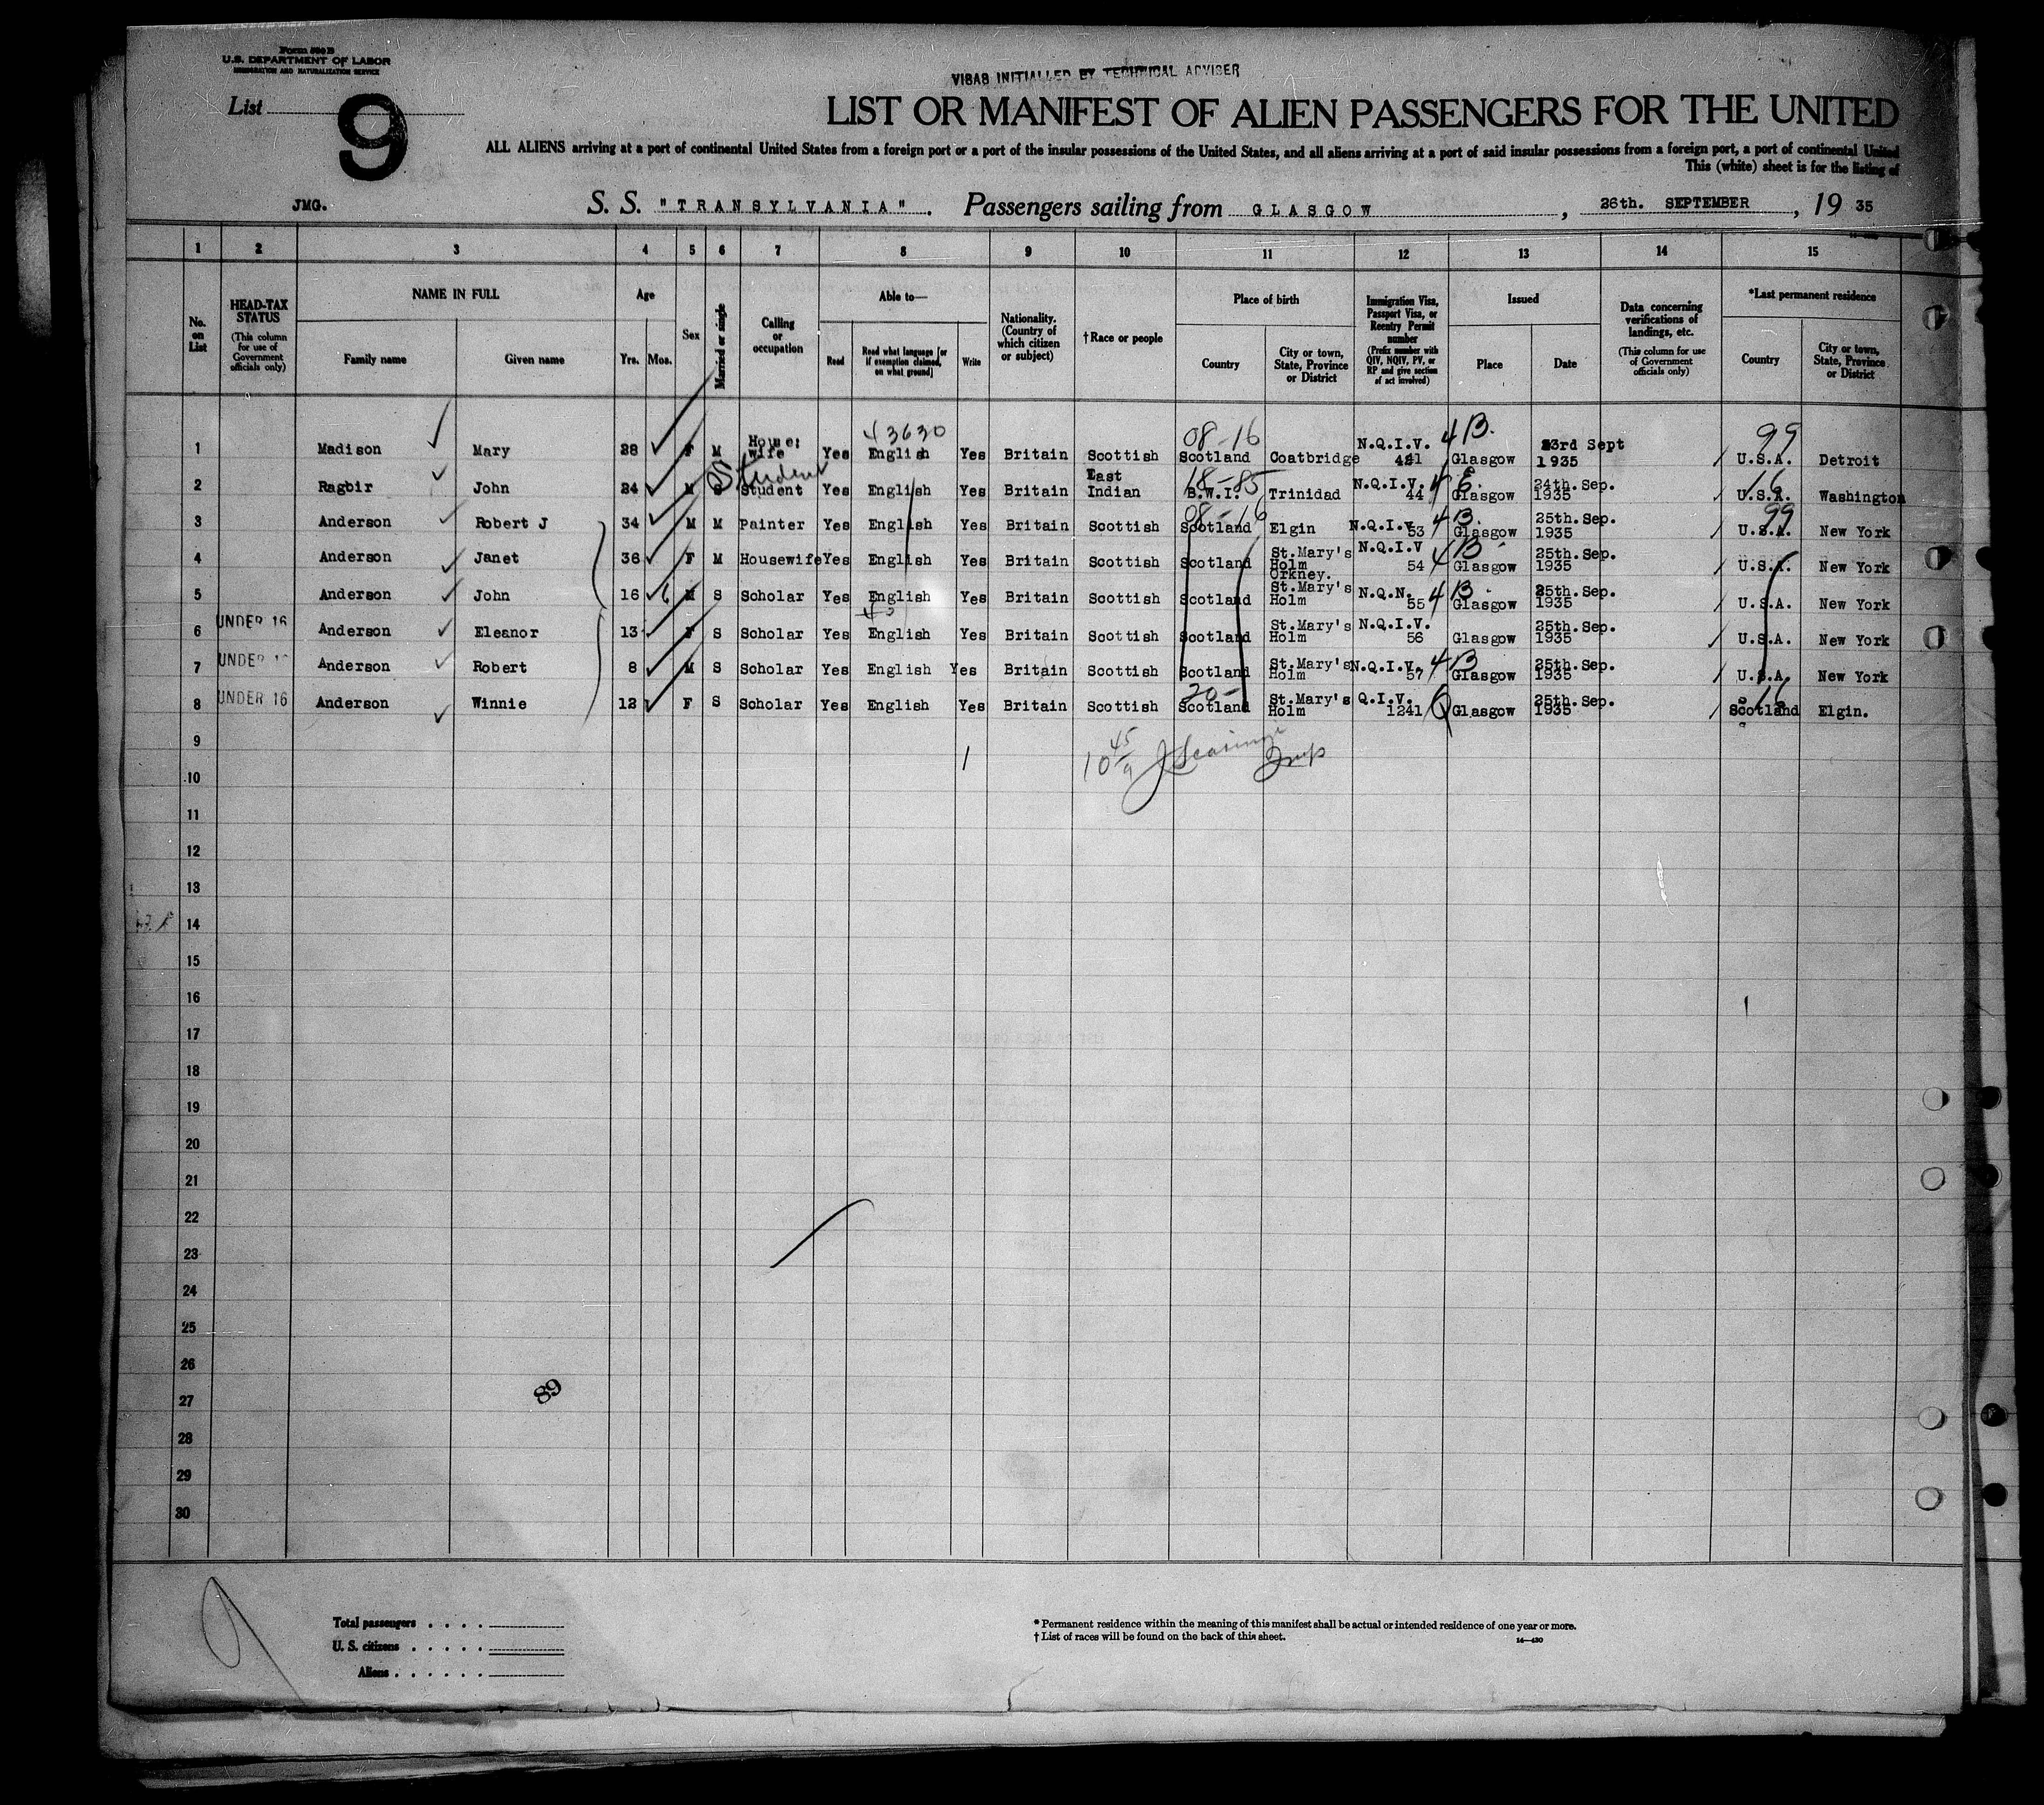 Form 500 B
U.S. DEPARTMENT OF LABOR
IMMIGRATION AND NATURALIZATION SERVICE
VISAS INITIALLED BY TECHNICAL ADVISER
List 9
LIST OR MANIFEST OF ALIEN PASSENGERS FOR THE UNITED
ALL ALIENS arriving at a port of continental United States from a foreign port or a port of the insular possessions of the United States, and all aliens arriving at a port of said insular possessions from a foreign port, a port of continental United
This (white) sheet is for the listing of
JMG. S. S. "TRANSYLVANIA". Passengers sailing from GLASGOW, 26th. SEPTEMBER, 19 35
1 2 3 4 5 6 7 8 9 10 11 12 13 14 15
No. on List
HEAD-TAX STATUS (This column for use of Government officials only)
NAME IN FULL Family name Given name
Age Yrs. Mos.
Sex
Married or single
Calling or occupation
Able to— Read Read what language [or if exemption claimed, on what ground] Write
Nationality. (Country of which citizen or subject)
†Race or people
Place of birth Country City or town, State, Province or District
Immigration Visa, Passport Visa, or Reentry Permit number (Prefix number with QIV, NQIV, PV, or RP and give section of act involved)
Issued Place Date
Data concerning verifications of landings, etc. (This column for use of Government officials only)
*Last permanent residence Country City or town, State, Province or District
43630 08-16 4B. 99
1 Madison Mary 28 F M House: wife Yes English Yes Britain Scottish Scotland Coatbridge N.Q.I.V. 441 Glasgow 23rd Sept 1935 U.S.A. Detroit
Student 18-85 4 16
2 Ragbir John 24 M S Student Yes English Yes Britain East Indian B.W.I. Trinidad N.Q.I.V. 44 Glasgow 24th. Sep. 1935 U.S.A. Washington
08-16 4B 99
3 Anderson Robert J 34 M M Painter Yes English Yes Britain Scottish Scotland Elgin N.Q.I.V. 53 Glasgow 25th. Sep. 1935 U.S.A. New York
4B
4 Anderson Janet 36 F M Housewife Yes English Yes Britain Scottish Scotland St.Mary's Holm Orkney. N.Q.I.V 54 Glasgow 25th. Sep. 1935 U.S.A. New York
4B
5 Anderson John 16 6 M S Scholar Yes English Yes Britain Scottish Scotland St.Mary's Holm N.Q.N. 55 Glasgow 25th. Sep. 1935 U.S.A. New York
6 UNDER 16 Anderson Eleanor 13 F S Scholar Yes English Yes Britain Scottish Scotland St.Mary's Holm N.Q.I.V. 56 Glasgow 25th. Sep. 1935 U.S.A. New York
4B
7 UNDER Anderson Robert 8 M S Scholar Yes English Yes Britain Scottish Scotland St.Mary's Holm N.Q.I.V. 57 Glasgow 25th. Sep. 1935 U.S.A. New York
20- Q 16
8 UNDER 16 Anderson Winnie 12 F S Scholar Yes English Yes Britain Scottish Scotland St.Mary's Holm Q.I.V. 1241 Glasgow 25th. Sep. 1935 Scotland Elgin.
9
10
11
12
13
14
15
16
17
18
19
20
21
22
23
24
25
26
27
28
29
30
89
9
Total passengers
U. S. citizens
Aliens
* Permanent residence within the meaning of this manifest shall be actual or intended residence of one year or more.
† List of races will be found on the back of this sheet.
14—430